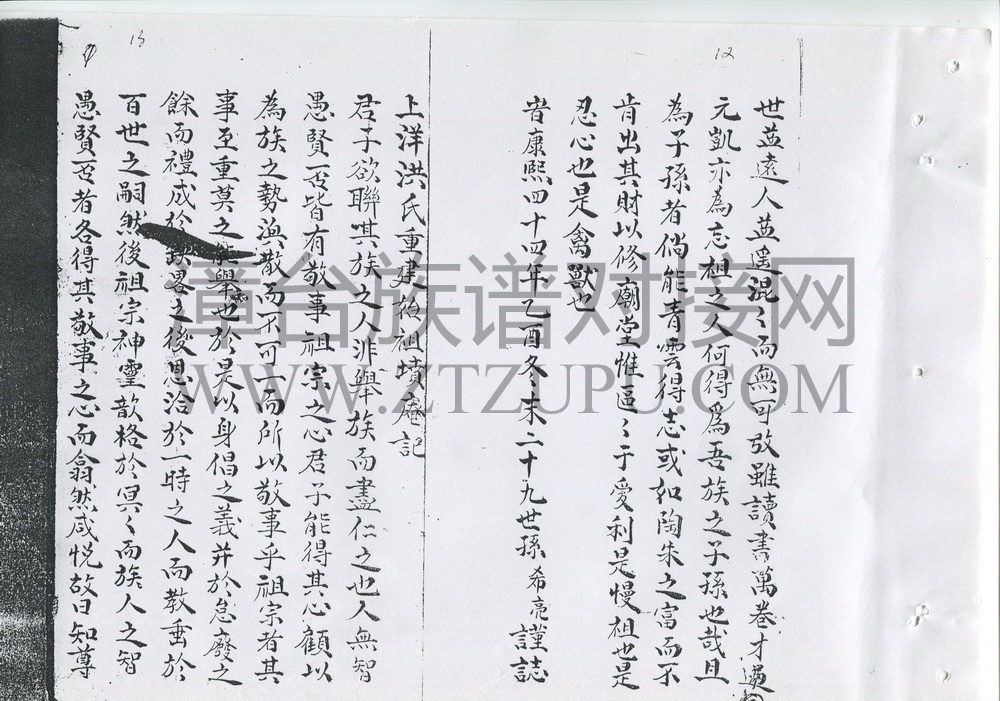 12
世益遠人益遙混〻而無可攷雖讀書萬卷才過
元凱亦為忘祖之人何得爲吾族之子孫也哉且
為子孫者倘能青雲得志或如陶朱之富而不
肯出其財以修廟堂惟區〻于愛利是慢祖也是
忍心也是禽獸也
者康熙四十四年乙酉冬末二十九世孫希亮謹誌
13
上洋洪氏重建後祖墳庵記
君子欲聯其族之人非舉族而盡仁之也人無智
愚賢否皆有敬事祖宗之心君子能得其心顧以
為族之勢渙散而不可一而所以敬事乎祖宗者其
事至重莫之能舉也於是以身倡之義并於怠廢之
餘而禮成於缺畧之後恩洽於一時之人而教垂於
百世之嗣然後祖宗神靈歆格於冥〻而族人之智
愚賢否者各得其敬事之心而翕然咸悅故曰知尊
章台族谱对接网
WWW.ZTZUPU.COM